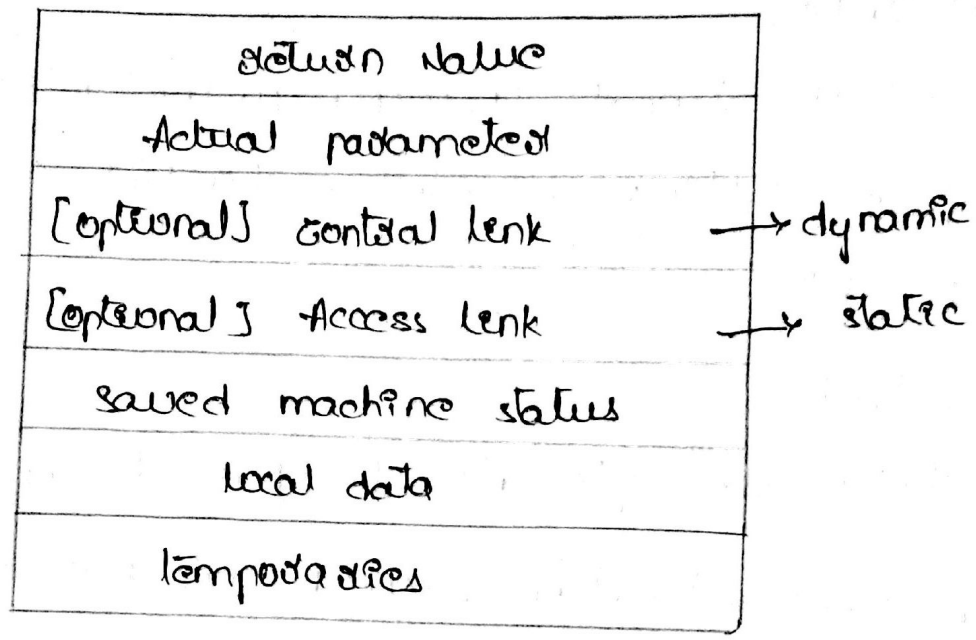 return value
Actual parameter
[optional] control link → dynamic
[optional] Access link → static
saved machine status
local data
temporaries